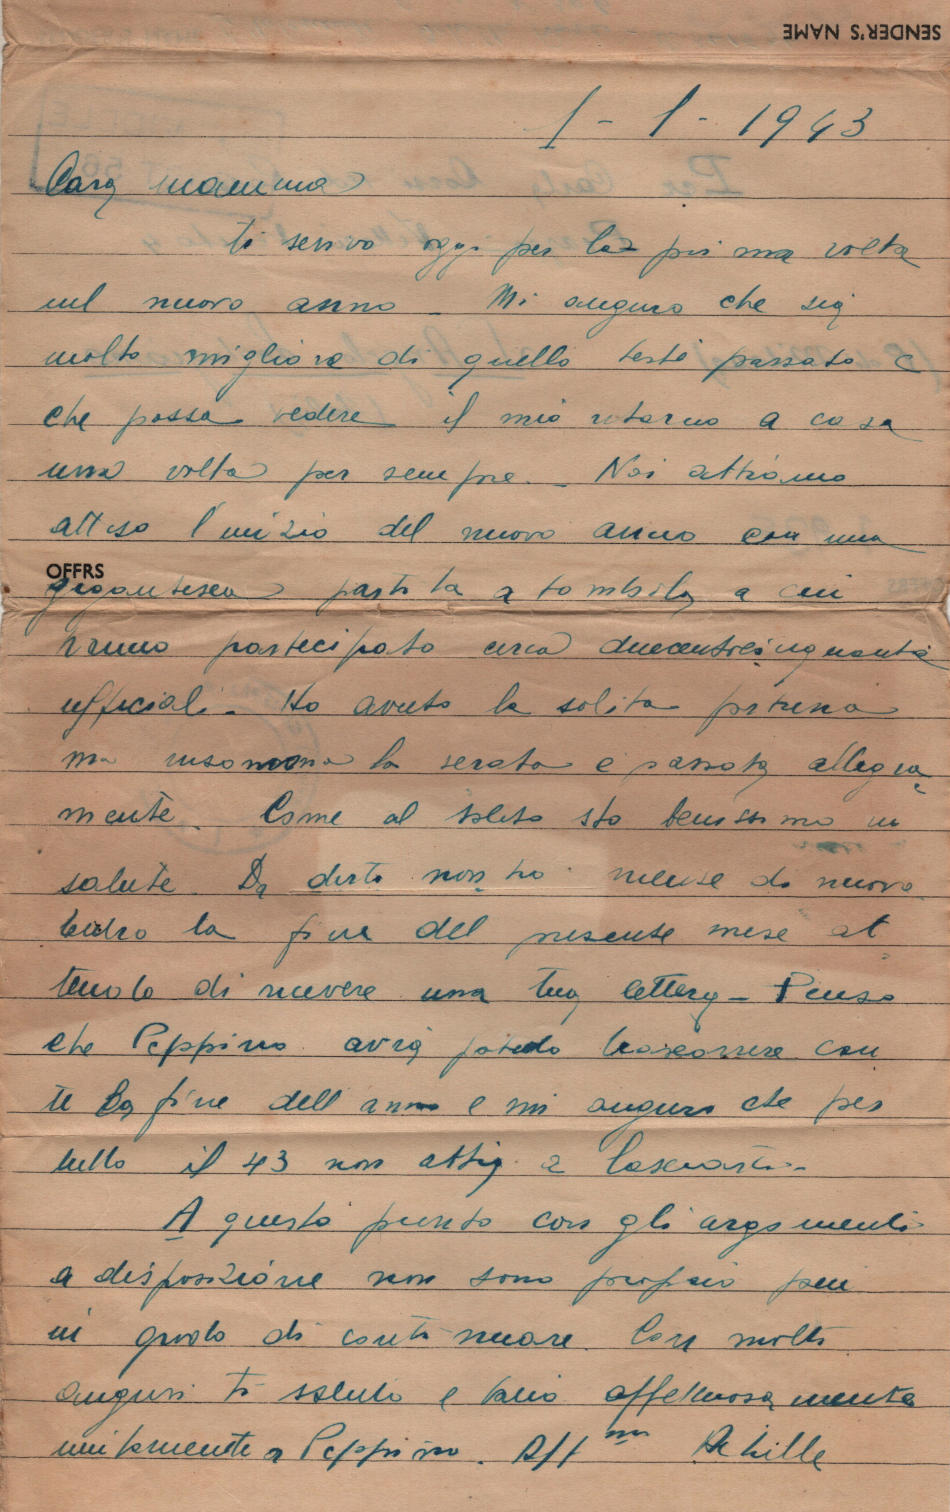 SENDER'S NAME
1 - 1 - 1943
Cara mamma
ti scrivo oggi per la prima volta
nel nuovo anno _ Mi auguro che sia
molto migliore di quello testé passato e
che possa vedere il mio ritorno a casa
una volta per sempre. _ Noi abbiamo
atteso l'inizio del nuovo anno con una
OFFRS
gigantesca partita a tombola a cui
hanno partecipato circa duecentocinquanta
ufficiali _ Ho avuto la solita
ma insomma la serata è passata allegra
mente. Come al solito sto benissimo in
salute. Da dirti non ho niente di nuovo.
Credo la fine del presente mese at
tendo di ricevere una tua lettera _ Penso
che Peppino avrà potuto trascorrere con
te la fine dell anno e mi auguro che per
tutto il 43 non abbia a lasciarti _
A questo punto con gli argomenti
a disposizione non sono proprio più
in grado di continuare. Con molti
auguri ti saluto e bacio affettuosamente
unitamente a Peppino. Aff mo Achille